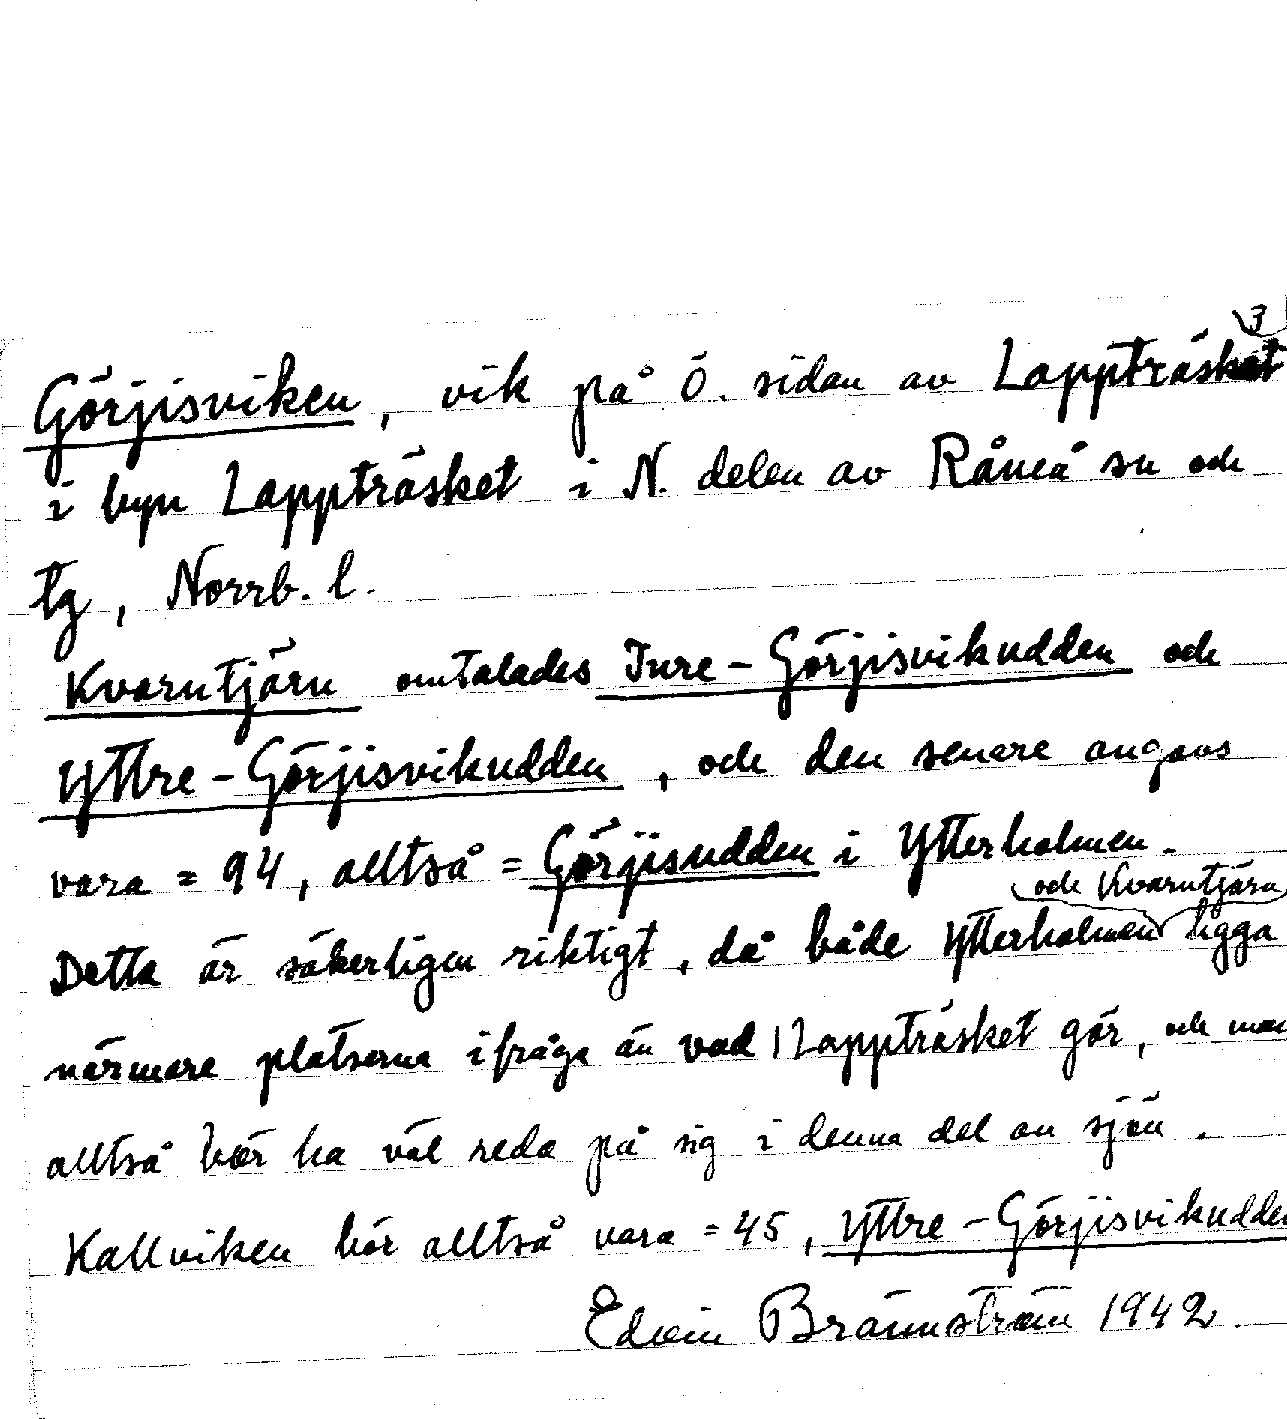 3
Görjisviken, vik på Ö. sidan av Lappträsket
i byn Lappträsket i N. delen av Råneå sn och
tg, Norrb. l.
Kvarntjärn omtalades Inre-Görjisvikudden och
Yttre-Görjisvikudden, och den senare angavs
vara = 94, alltså = Görjisudden i Ytterholmen.
och Kvarntjärn
Detta är säkerligen riktigt, då både Ytterholmen ligga
närmare platserna ifråga än vad Lappträsket gör, och man
alltså bör ha väl reda på sig i denna del av sjön.
Kallviken bör alltså vara = 45, Yttre-Görjisvikudden
Edvin Brännström 1942.